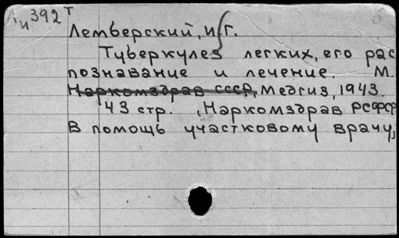 392 Т
Лемберский, И. Г.
Туберкулез легких, его рас
познавание и лечение. М.
Наркомздрав СССР, Медгиз, 1943.
43 стр. , Наркомздрав РСФСР
В помощь участковому врачу,